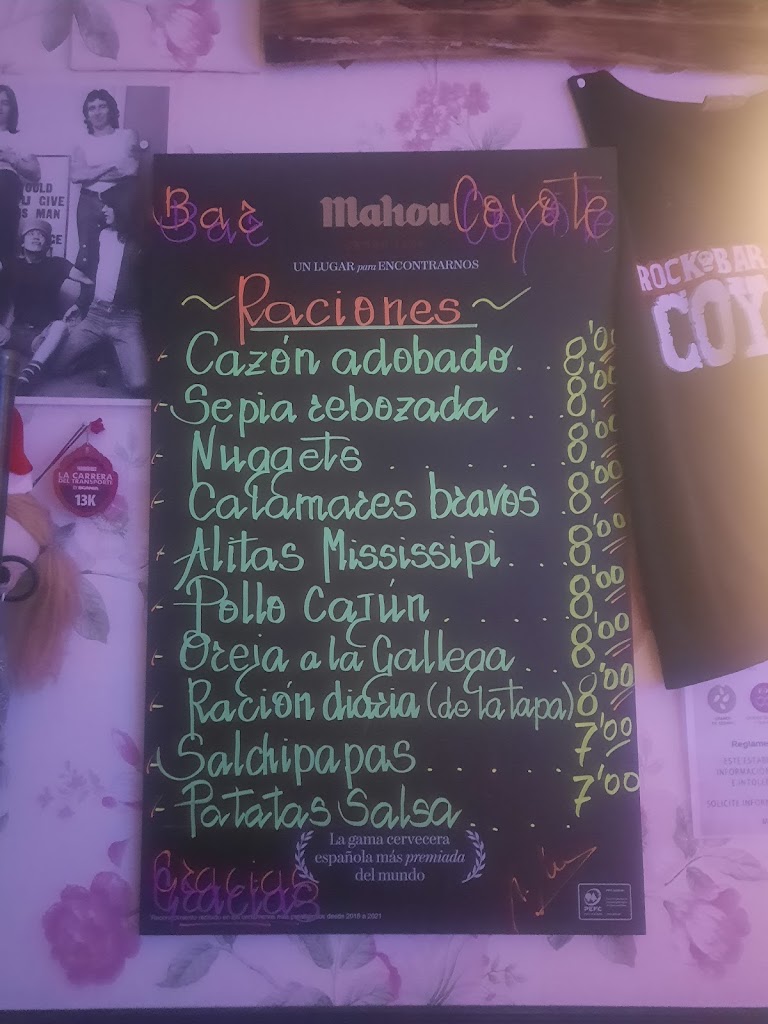 OULD
U GIVE
S MAN
CE
Bar Mahou Coyote
UN LUGAR para ENCONTRARNOS
~ Raciones ~
- Cazón adobado... 8'00
- Sepia rebozada.... 8'00
- Nuggets......... 8'00
- Calamares bravos. 8'00
- Alitas Mississipi... 8'00
- Pollo Cajún...... 8'00
- Oreja a la Gallega... 8'00
- Ración diaria (de la tapa) 8'00
- Salchipapas...... 7'00
- Patatas Salsa.... 7'00
La gama cervecera
española más premiada
del mundo
Gracias
desde 2018 a 2021
PEFC
ROCK BAR
COY
LA CARRERA
DEL TRANSPORTE
13K
Reglame
ESTE ESTAB
INFORMACIÓ
E INTOLE
SOLICITE INFOR